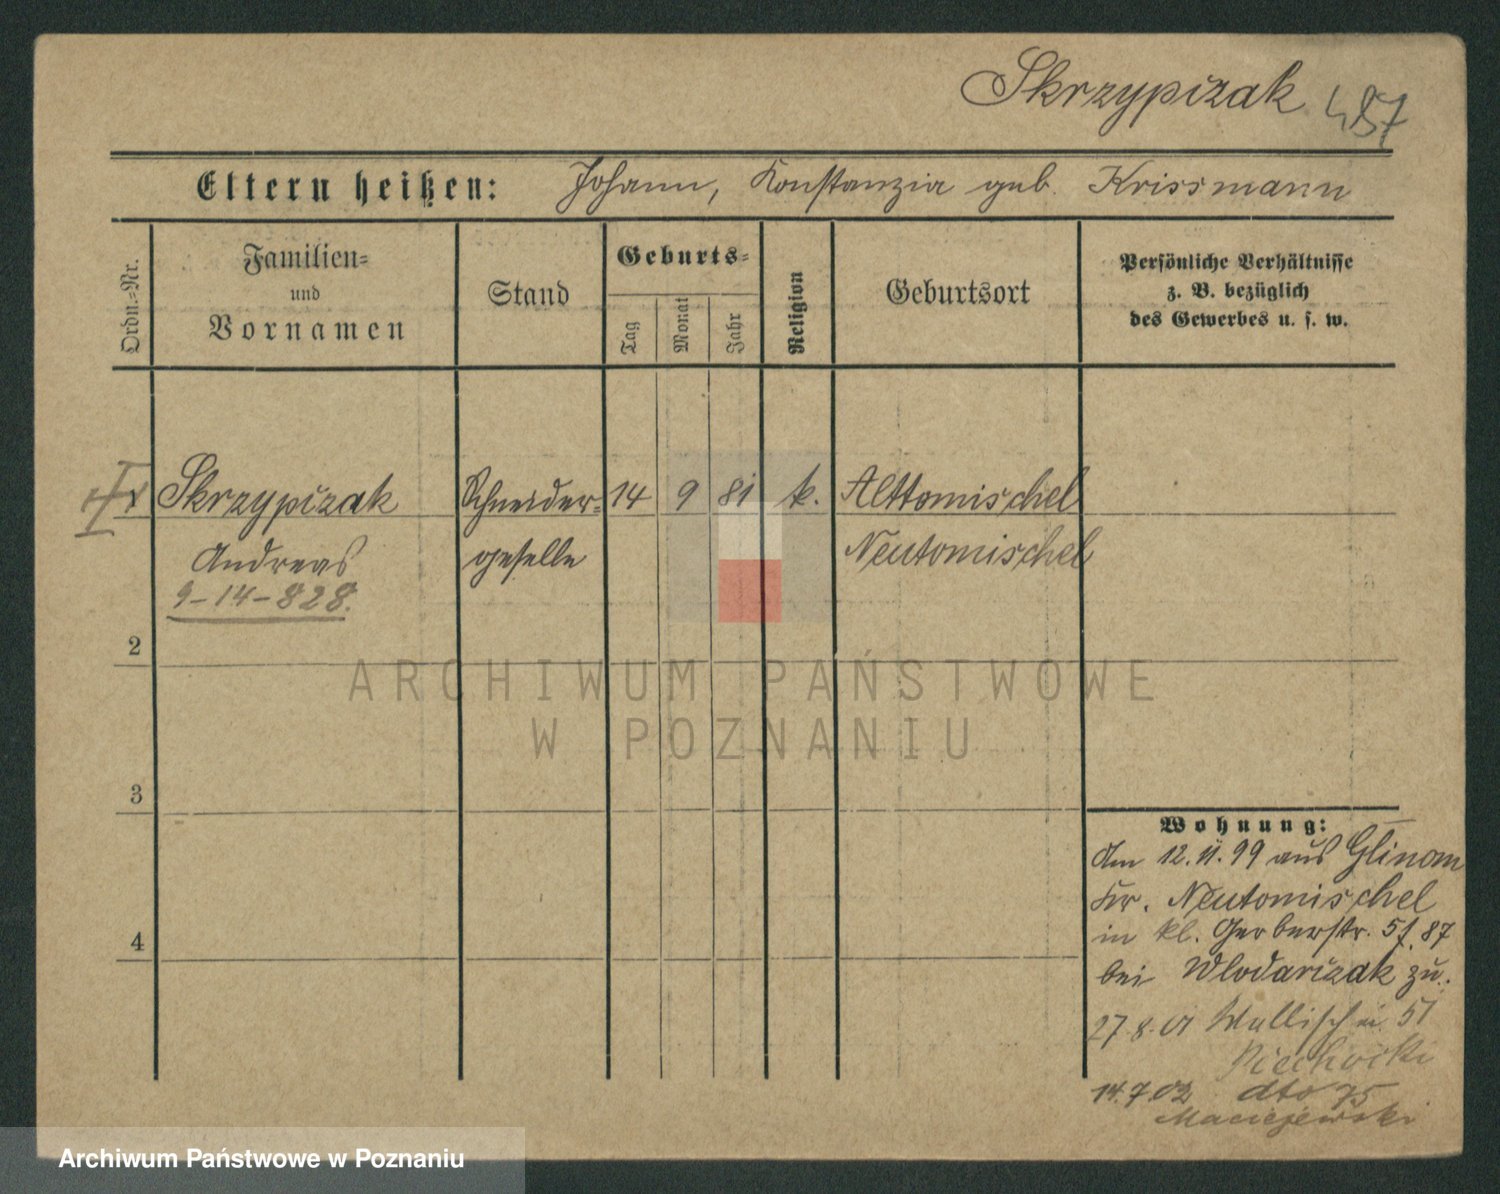 Skrzypczak 487
Eltern heißen: Johann, Konstanzia geb. Krissmann
Ordn.=Nr.
Familien=
und
Vornamen
Stand
Geburts=
Tag
Monat
Jahr
Religion
Geburtsort
Persönliche Verhältnisse
z. B. bezüglich
des Gewerbes u. s. w.
1 Skrzypczak Schneider= 14 9 81 k. Alttomischel
Andreas geselle Neutomischel
9-14-828.
2
3
4
Wohnung:
Am 12.11.99 aus Glinau
Kr. Neutomischel
in kl. Gerberstr. 5 87
bei Wlodarczak zu.
27.8.01 Wallischei 51
Piechocki
14.7.02 dto 75
Maciejewski
ARCHIWUM PAŃSTWOWE
W POZNANIU
Archiwum Państwowe w Poznaniu